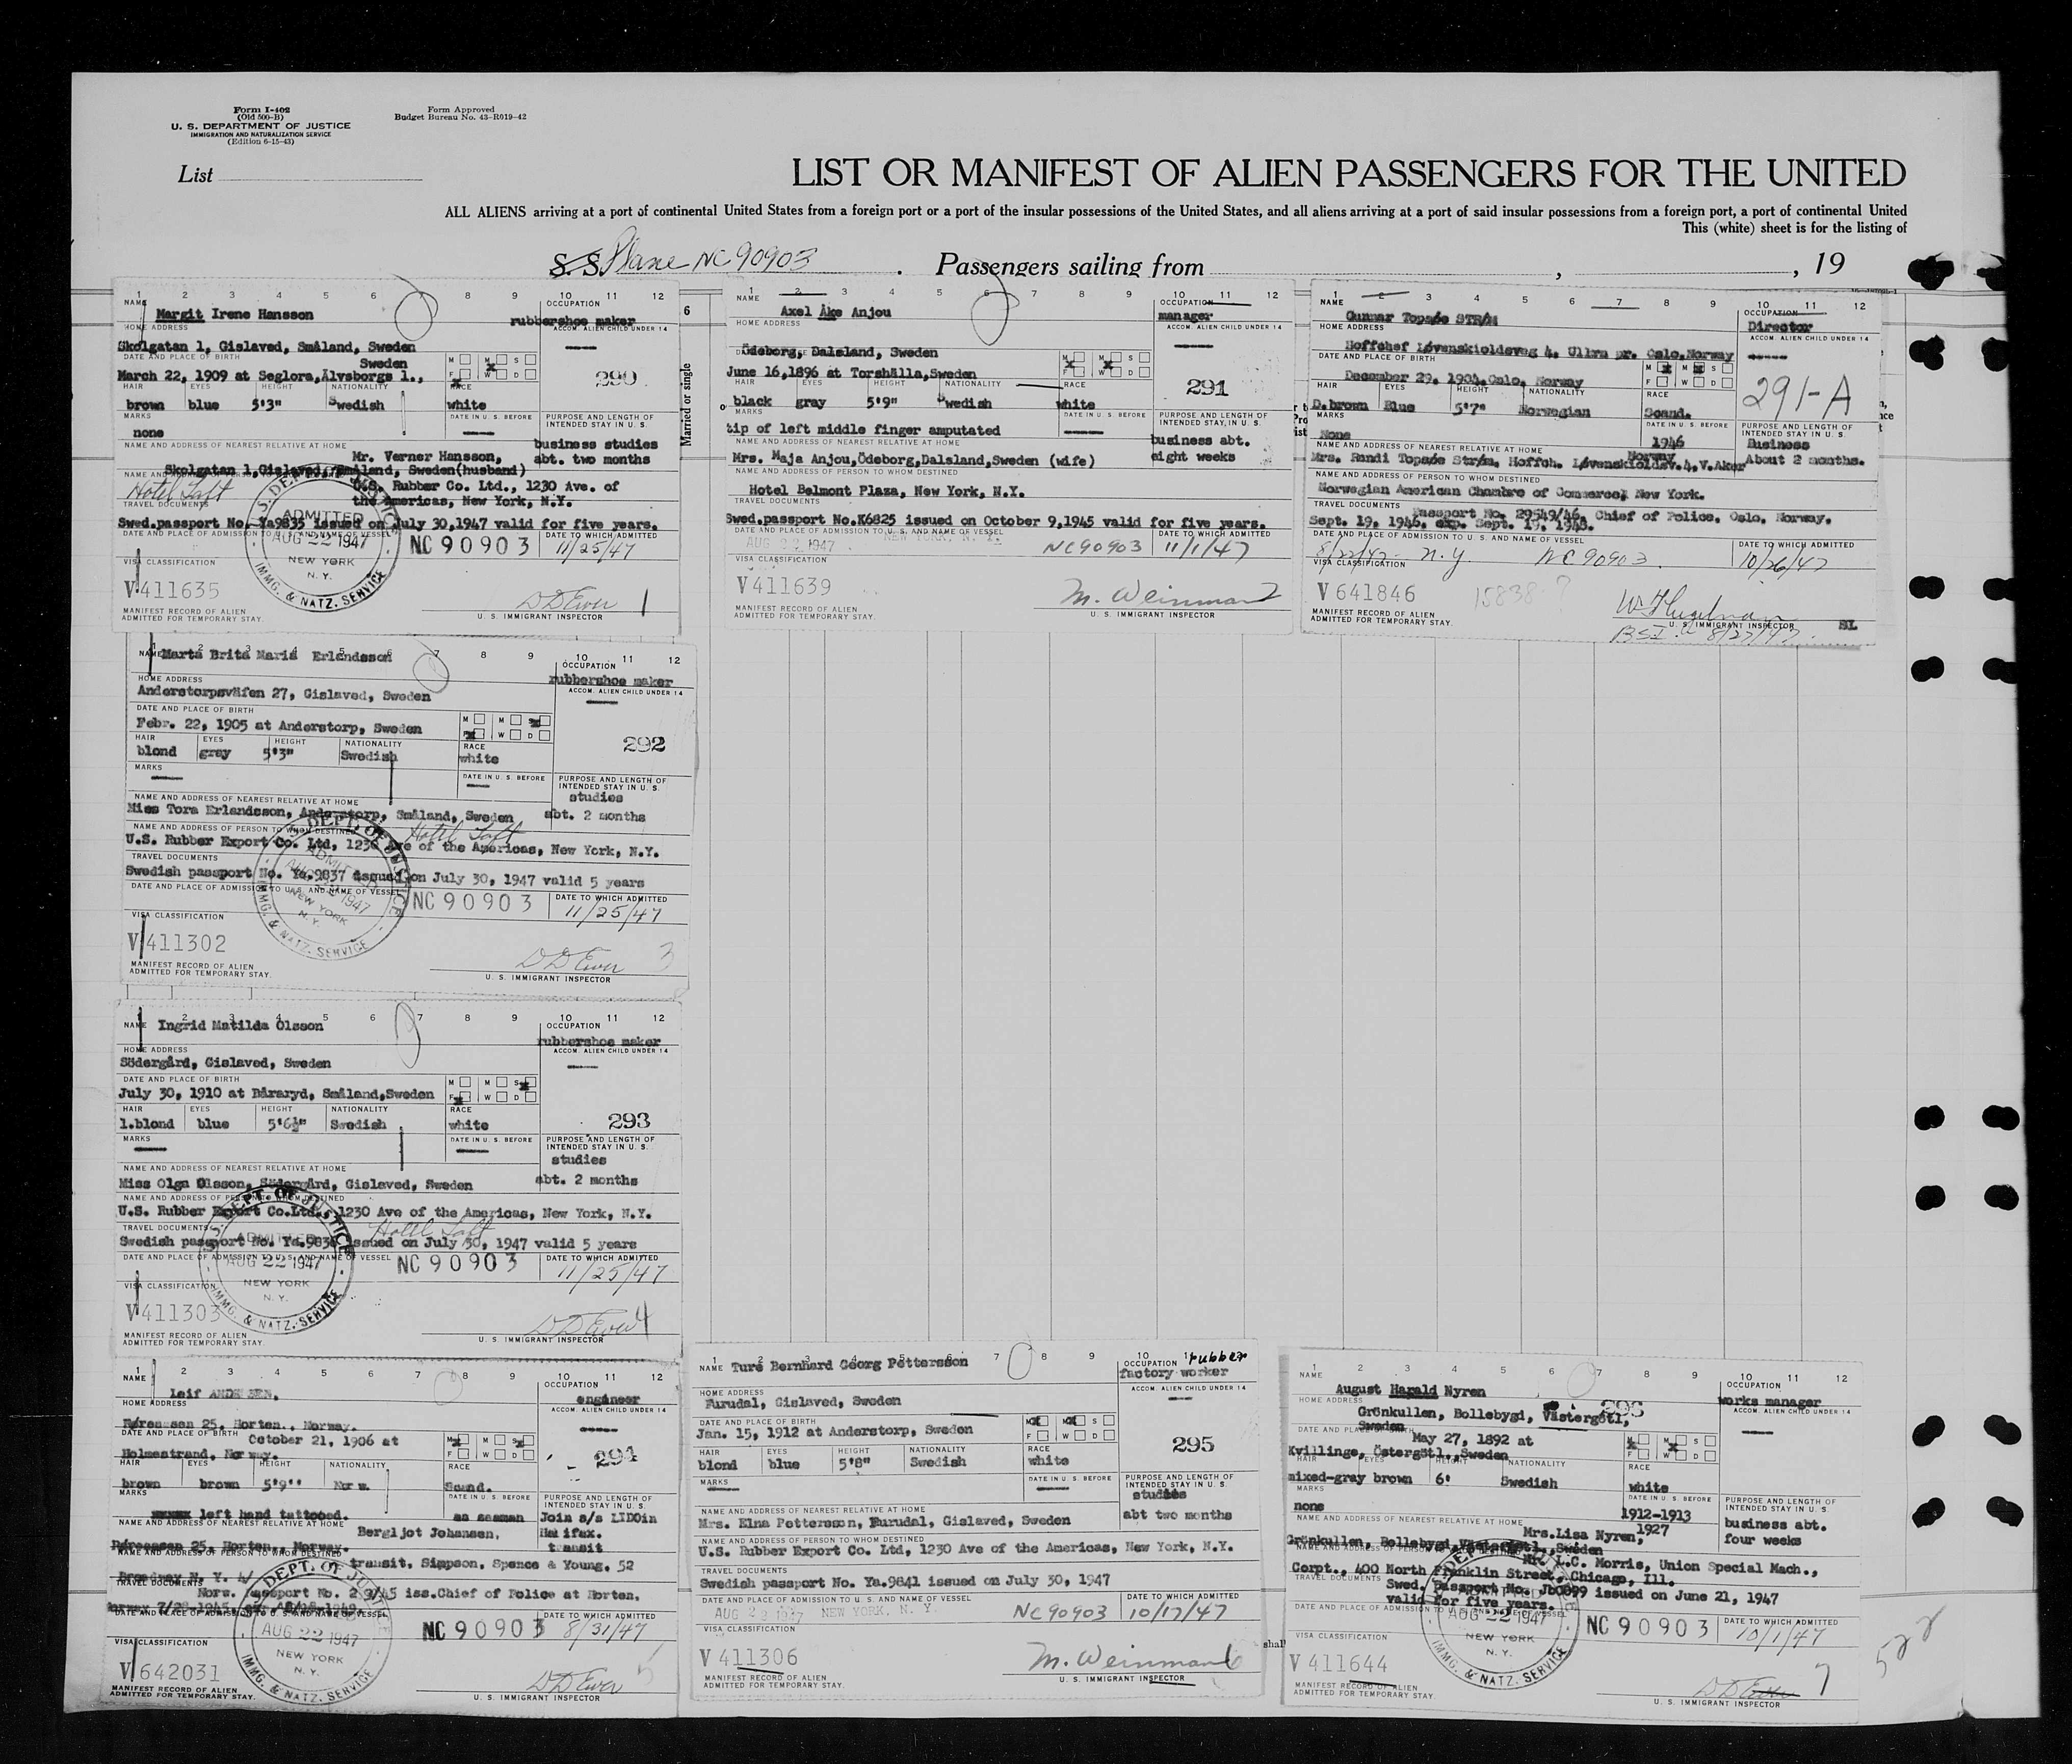 Form I-402
(Old 500-B)
U. S. DEPARTMENT OF JUSTICE
IMMIGRATION AND NATURALIZATION SERVICE
(Edition 6-15-43)
Form Approved
Budget Bureau No. 43-R019-42
List
LIST OR MANIFEST OF ALIEN PASSENGERS FOR THE UNITED
ALL ALIENS arriving at a port of continental United States from a foreign port or a port of the insular possessions of the United States, and all aliens arriving at a port of said insular possessions from a foreign port, a port of continental United
This (white) sheet is for the listing of
S. S. Plane NC 90903 . Passengers sailing from , , 19
1 2 3 4 5 6 7 8 9 10 11 12
NAME Margit Irene Hansson
OCCUPATION rubbershoe maker
HOME ADDRESS
ACCOM. ALIEN CHILD UNDER 14
Skolgatan 1, Gislaved, Småland, Sweden
DATE AND PLACE OF BIRTH Sweden
March 22, 1909 at Seglora, Älvsborgs l.,
M M S
F W D
290
HAIR EYES HEIGHT NATIONALITY RACE
brown blue 5'3" Swedish white
MARKS none
DATE IN U. S. BEFORE
PURPOSE AND LENGTH OF INTENDED STAY IN U. S.
business studies
abt. two months
NAME AND ADDRESS OF NEAREST RELATIVE AT HOME
Mr. Verner Hansson,
Skolgatan 1, Gislaved, Småland, Sweden (husband)
Hotel Taft
U.S. Rubber Co. Ltd., 1230 Ave. of
the Americas, New York, N.Y.
TRAVEL DOCUMENTS
Swed.passport No. Ya9835 issued on July 30,1947 valid for five years.
DATE AND PLACE OF ADMISSION TO U. S. AND NAME OF VESSEL
NC 90903
DATE TO WHICH ADMITTED
11/25/47
U.S. DEPT. OF JUSTICE
ADMITTED
AUG 22 1947
NEW YORK
N. Y.
IMMG. & NATZ. SERVICE
VISA CLASSIFICATION
V 411635
MANIFEST RECORD OF ALIEN
ADMITTED FOR TEMPORARY STAY.
U. S. IMMIGRANT INSPECTOR
1
6
Married or single
1 2 3 4 5 6 7 8 9 10 11 12
NAME Axel Åke Anjou
OCCUPATION manager
HOME ADDRESS
ACCOM. ALIEN CHILD UNDER 14
Ödeborg, Dalsland, Sweden
June 16,1896 at Torshälla,Sweden
M M S
F W D
291
HAIR EYES HEIGHT NATIONALITY RACE
black gray 5'9" Swedish white
MARKS
DATE IN U. S. BEFORE
PURPOSE AND LENGTH OF INTENDED STAY, IN U. S.
tip of left middle finger amputated
business abt.
eight weeks
NAME AND ADDRESS OF NEAREST RELATIVE AT HOME
Mrs. Maja Anjou,Ödeborg,Dalsland,Sweden (wife)
NAME AND ADDRESS OF PERSON TO WHOM DESTINED
Hotel Belmont Plaza, New York, N.Y.
TRAVEL DOCUMENTS
Swed.passport No.K6825 issued on October 9,1945 valid for five years.
DATE AND PLACE OF ADMISSION TO U. S. AND NAME OF VESSEL
AUG 22 1947 NEW YORK, N. Y. NC90903
DATE TO WHICH ADMITTED
11/1/47
VISA CLASSIFICATION
V 411639
M. Weinman
2
MANIFEST RECORD OF ALIEN
ADMITTED FOR TEMPORARY STAY.
U. S. IMMIGRANT INSPECTOR
1 2 3 4 5 6 7 8 9 10 11 12
NAME Gunnar Topsøe STRØM
OCCUPATION Director
HOME ADDRESS
ACCOM. ALIEN CHILD UNDER 14
Hoffchef Løvenskioldsveg 4, Ullrn pr. Oslo,Norway
DATE AND PLACE OF BIRTH
December 29, 1904,Oslo, Norway
M M S
F W D
291-A
HAIR EYES HEIGHT NATIONALITY RACE
D.brown Blue 5'7" Norwegian Scand.
MARKS None
DATE IN U. S. BEFORE 1946
PURPOSE AND LENGTH OF INTENDED STAY IN U. S.
Business
About 2 months.
NAME AND ADDRESS OF NEAREST RELATIVE AT HOME Norway
Mrs. Randi Topsøe Strøm, Hoffch. Løvenskioldsv.4,V.Aker
NAME AND ADDRESS OF PERSON TO WHOM DESTINED
Norwegian American Chambre of Commerce, New York.
TRAVEL DOCUMENTS
Passport No. 29549/46, Chief of Police, Oslo, Norway.
Sept. 19, 1946, exp. Sept. 19, 1948.
DATE AND PLACE OF ADMISSION TO U. S. AND NAME OF VESSEL
8/22/47 - N.Y NC 90903
DATE TO WHICH ADMITTED
10/26/47
VISA CLASSIFICATION
V 641846
MANIFEST RECORD OF ALIEN
ADMITTED FOR TEMPORARY STAY.
U. S. IMMIGRANT INSPECTOR
SL
1 2 3 4 5 6 7 8 9 10 11 12
NAME Marta Brita Maria Erlandsson
OCCUPATION rubbershoe maker
HOME ADDRESS
ACCOM. ALIEN CHILD UNDER 14
Anderstorpsväfen 27, Gislaved, Sweden
DATE AND PLACE OF BIRTH
Febr. 22, 1905 at Anderstorp, Sweden
M M S
F W D
292
HAIR EYES HEIGHT NATIONALITY RACE
blond gray 5'3" Swedish white
MARKS
DATE IN U. S. BEFORE
PURPOSE AND LENGTH OF INTENDED STAY IN U. S.
studies
abt. 2 months
NAME AND ADDRESS OF NEAREST RELATIVE AT HOME
Miss Tora Erlandsson, Anderstorp, Småland, Sweden
NAME AND ADDRESS OF PERSON TO WHOM DESTINED
Hotel Taft
U.S. Rubber Export Co. Ltd, 1230 Ave of the Americas, New York, N.Y.
TRAVEL DOCUMENTS
Swedish passport No. Ya.9837 issued on July 30, 1947 valid 5 years
DATE AND PLACE OF ADMISSION TO U. S. AND NAME OF VESSEL
NC 90903
DATE TO WHICH ADMITTED
11/25/47
VISA CLASSIFICATION
V 411302
3
MANIFEST RECORD OF ALIEN
ADMITTED FOR TEMPORARY STAY.
U. S. IMMIGRANT INSPECTOR
1 2 3 4 5 6 7 8 9 10 11 12
NAME Ingrid Matilda Olsson
OCCUPATION rubbershoe maker
HOME ADDRESS
ACCOM. ALIEN CHILD UNDER 14
Södergård, Gislaved, Sweden
DATE AND PLACE OF BIRTH
July 30, 1910 at Båraryd, Småland,Sweden
M M S
F W D
293
HAIR EYES HEIGHT NATIONALITY RACE
l.blond blue 5'6½" Swedish white
MARKS
DATE IN U. S. BEFORE
PURPOSE AND LENGTH OF INTENDED STAY IN U. S.
studies
abt. 2 months
NAME AND ADDRESS OF NEAREST RELATIVE AT HOME
Miss Olga Olsson, Södergård, Gislaved, Sweden
NAME AND ADDRESS OF PERSON TO WHOM DESTINED
U.S. Rubber Export Co.Ltd., 1230 Ave of the Americas, New York, N.Y.
TRAVEL DOCUMENTS Hotel Taft
Swedish passport No. issued on July 30, 1947 valid 5 years
DATE AND PLACE OF ADMISSION TO U. S. AND NAME OF VESSEL
AUG 22 1947
NEW YORK
N. Y.
NC 90903
DATE TO WHICH ADMITTED
11/25/47
VISA CLASSIFICATION
V 411303
4
MANIFEST RECORD OF ALIEN
ADMITTED FOR TEMPORARY STAY.
U. S. IMMIGRANT INSPECTOR
1 2 3 4 5 6 7 8 9 10 11 12
NAME Leif ANDERSEN.
OCCUPATION engineer
HOME ADDRESS
ACCOM. ALIEN CHILD UNDER 14
25, Horten., Norway.
DATE AND PLACE OF BIRTH October 21, 1906 at
Holmestrand, Norway.
M M S
F W D
294
HAIR EYES HEIGHT NATIONALITY RACE
brown brown 5'9'' Norw. Scand.
MARKS left hand tattooed.
DATE IN U. S. BEFORE as seaman
PURPOSE AND LENGTH OF INTENDED STAY IN U. S.
Join s/s LIDOin
Halifax.
transit
NAME AND ADDRESS OF NEAREST RELATIVE AT HOME
Bergljot Johansen,
25, Horten., Norway.
NAME AND ADDRESS OF PERSON TO WHOM DESTINED
transit, Simpson, Spence & Young, 52
Broadway N. Y.
TRAVEL DOCUMENTS
Norw. Passport No. iss.Chief of Police at Horten,
DATE AND PLACE OF ADMISSION TO U. S. AND NAME OF VESSEL
AUG 22 1947
NEW YORK
N. Y.
IMMG. & NATZ. SERVICE
NC 90903
8/31/47
VISA CLASSIFICATION
V 642031
5
MANIFEST RECORD OF ALIEN
ADMITTED FOR TEMPORARY STAY.
U. S. IMMIGRANT INSPECTOR
1 2 3 4 5 6 7 8 9 10 11 12
NAME Ture Bernhard Georg Pettersson
OCCUPATION rubber
factory worker
HOME ADDRESS
ACCOM. ALIEN CHILD UNDER 14
Furudal, Gislaved, Sweden
DATE AND PLACE OF BIRTH
Jan. 15, 1912 at Anderstorp, Sweden
M M S
F W D
295
HAIR EYES HEIGHT NATIONALITY RACE
blond blue 5'8" Swedish white
MARKS
DATE IN U. S. BEFORE
PURPOSE AND LENGTH OF INTENDED STAY IN U. S.
studies
abt two months
NAME AND ADDRESS OF NEAREST RELATIVE AT HOME
Mrs. Elna Pettersson, Furudal, Gislaved, Sweden
NAME AND ADDRESS OF PERSON TO WHOM DESTINED
U.S. Rubber Export Co. Ltd, 1230 Ave of the Americas, New York, N.Y.
TRAVEL DOCUMENTS
Swedish passport No. Ya.9841 issued on July 30, 1947
DATE AND PLACE OF ADMISSION TO U. S. AND NAME OF VESSEL
AUG 22 1947 NEW YORK, N. Y. NC90903
DATE TO WHICH ADMITTED
10/17/47
VISA CLASSIFICATION
V 411306
M. Weinman
6
MANIFEST RECORD OF ALIEN
ADMITTED FOR TEMPORARY STAY.
U. S. IMMIGRANT INSPECTOR
shall
1 2 3 4 5 6 7 8 9 10 11 12
NAME August Harald Nyren
OCCUPATION works manager
HOME ADDRESS
ACCOM. ALIEN CHILD UNDER 14
296
Grönkullen, Bollebygd, Västergötl,
Sweden
DATE AND PLACE OF BIRTH May 27, 1892 at
Kvillinge, Östergötl.,Sweden
M M S
F W D
HAIR EYES HEIGHT NATIONALITY RACE
mixed-gray brown 6' Swedish white
MARKS none
DATE IN U. S. BEFORE
1912-1913
1927
PURPOSE AND LENGTH OF INTENDED STAY IN U. S.
business abt.
four weeks
NAME AND ADDRESS OF NEAREST RELATIVE AT HOME
Mrs.Lisa Nyren,
Grönkullen, Bollebygd, Västergötl., Sweden
Mr. L.C. Morris, Union Special Mach.,
Corpt., 400 North Franklin Street, Chicago, Ill.
TRAVEL DOCUMENTS
Swed. passport No. Jb0899 issued on June 21, 1947
valid for five years.
DATE AND PLACE OF ADMISSION TO U. S. AND NAME OF VESSEL
AUG 22 1947
NEW YORK
N. Y.
IMMG. & NATZ. SERVICE
NC 90903
DATE TO WHICH ADMITTED
10/1/47
VISA CLASSIFICATION
V 411644
7
MANIFEST RECORD OF ALIEN
ADMITTED FOR TEMPORARY STAY.
U. S. IMMIGRANT INSPECTOR
522